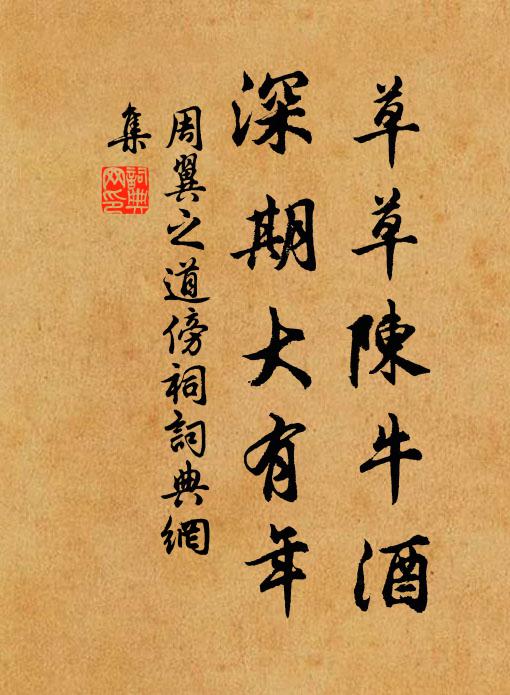 草草陳牛酒
深期大有年
周翼之道傍祠詞典網
集
詞典
网印